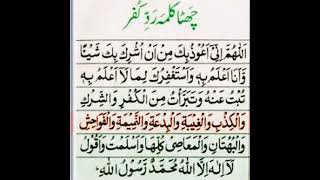 چھٹا کلمہ ردِّ کفر
اَللّٰهُمَّ اِنِّیْٓ اَعُوْذُ بِكَ مِنْ اَنْ اُشْرِكَ بِكَ شَیْئًا
وَّاَنَا اَعْلَمُ بِهٖ وَاَسْتَغْفِرُكَ لِمَا لَآ اَعْلَمُ بِهٖ
تُبْتُ عَنْهُ وَتَبَرَّأْتُ مِنَ الْكُفْرِ وَالشِّرْكِ
وَالْكِذْبِ وَالْغِیْبَةِ وَالْبِدْعَةِ وَالنَّمِیْمَةِ وَالْفَوَاحِشِ
وَالْبُهْتَانِ وَالْمَعَاصِیْ كُلِّهَا وَاَسْلَمْتُ وَاَقُوْلُ
لَآ اِلٰهَ اِلَّا اللّٰهُ مُحَمَّدٌ رَّسُوْلُ اللّٰهِ